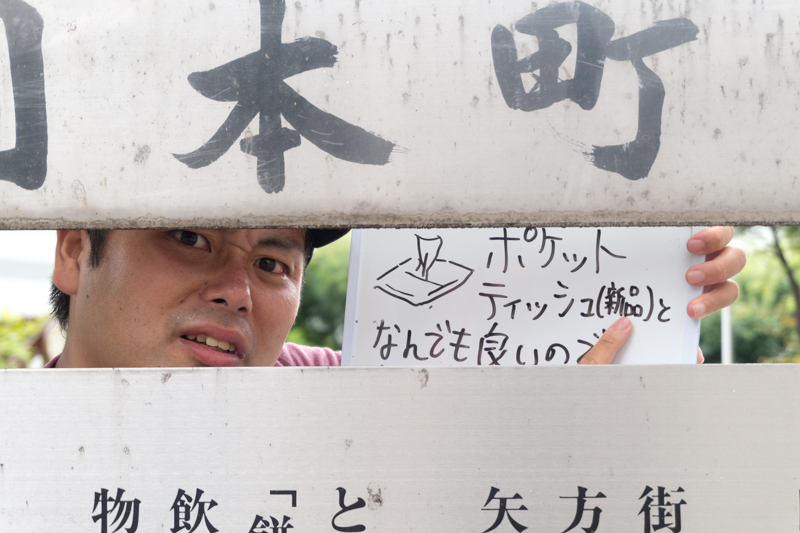 本町
ポケット
ティッシュ(新品)と
なんでも良いので
物飲「と 矢方街